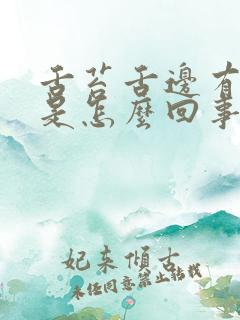 舌苔舌邊有
是怎麼回事
妃来傾古
未经同意禁止转载